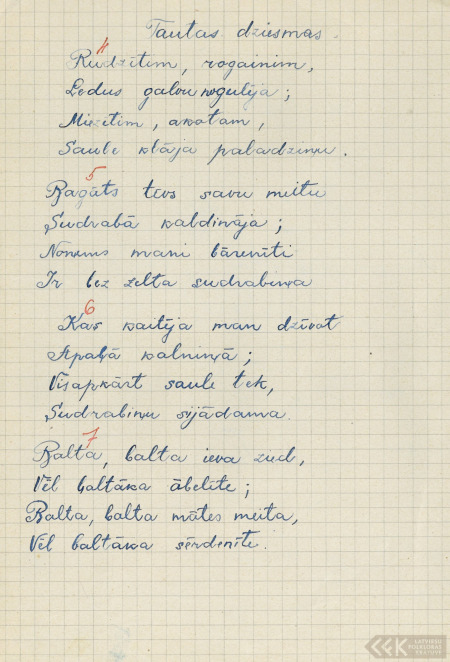 Tautas dziesmas.
4
Rudzītim, rogainim,
Ledus galvu nogulēja;
Miezītim, akotam,
Saule klāja paladziņu.
5
Bagāts tēvs savu meitu
Sudrabā kaldināja;
Noņems mani bārenīti
Ir bez zelta sudrabiņa
6
Kas kaitēja man dzīvot
Apaļā kalniņā;
Visapkārt saule tek,
Sudrabiņu sijādama.
7
Balta, balta ieva zied,
Vēl baltāka ābelīte;
Balta, balta mātes meita,
Vēl baltāka sērdienīte.
LATVIEŠU
FOLKLORAS
KRĀTUVE